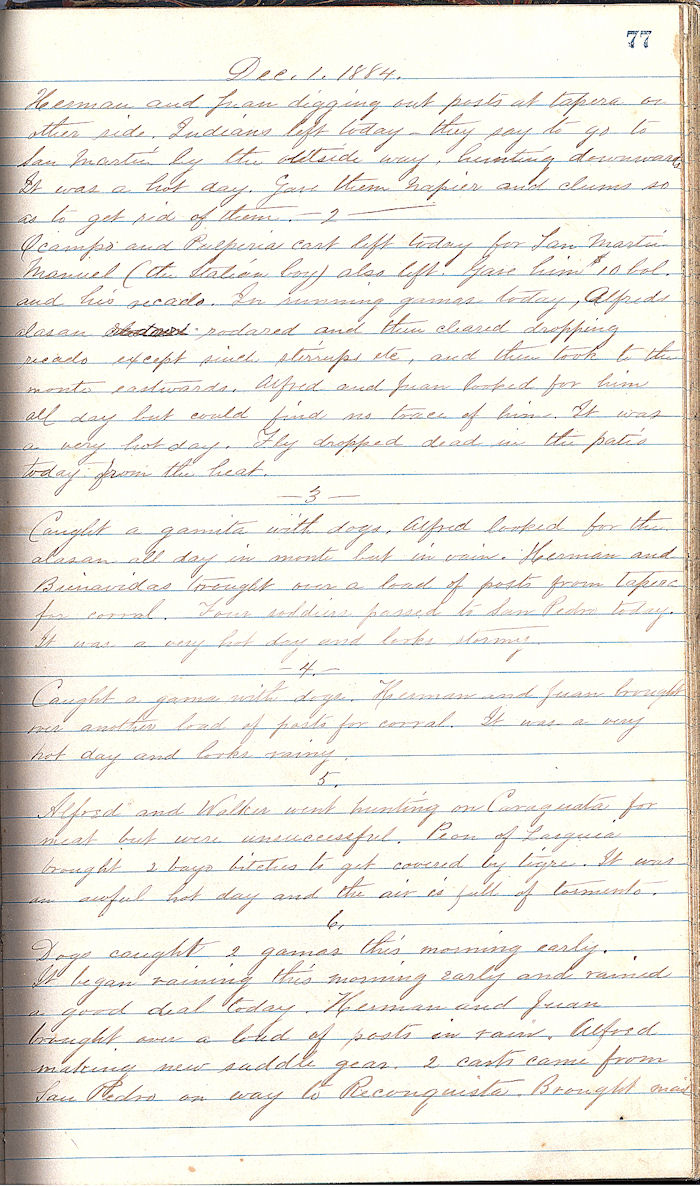 77
Dec. 1. 1884.
Herman and Juan digging out posts at tapera on
other side. Indians left today - they say to go to
San Martin by the outside way, hunting downwards
It was a hot day. Gave them Napier and clums so
as to get rid of them. - 2 -
Ocampo and Pulperia cart left today for San Martin
Manuel (the Italian boy) also left. Gave him $10 bol.
and his recado. In running gamas today, Alfreds
alasan rodared and then cleared dropping
recado except sinch stirrups etc, and then took to the
monte eastwards. Alfred and Juan looked for him
all day but could find no trace of him. It was
a very hot day. Fly dropped dead in the patio
today from the heat.
- 3 -
Caught a gamita with dogs. Alfred looked for the
alasan all day in monte but in vain. Herman and
Binavidas brought over a load of posts from tapera
for corral. Four soldiers passed to San Pedro today.
It was a very hot day and looks stormy.
- 4. -
Caught a gama with dogs. Herman and Juan brought
over another load of posts for corral. It was a very
hot day and looks rainy.
5.
Alfred and Walker went hunting on Caraguata for
meat but were unsuccessful. Peon of
brought 2 bayo bitches to get covered by tigre. It was
an awful hot day and the air is full of tormento.
6.
Dogs caught 2 gamas this morning early.
It began raining this morning early and rained
a good deal today. Herman and Juan
brought over a load of posts in rain. Alfred
making new saddle gear. 2 carts came from
San Pedro on way to Reconquista. Brought mail